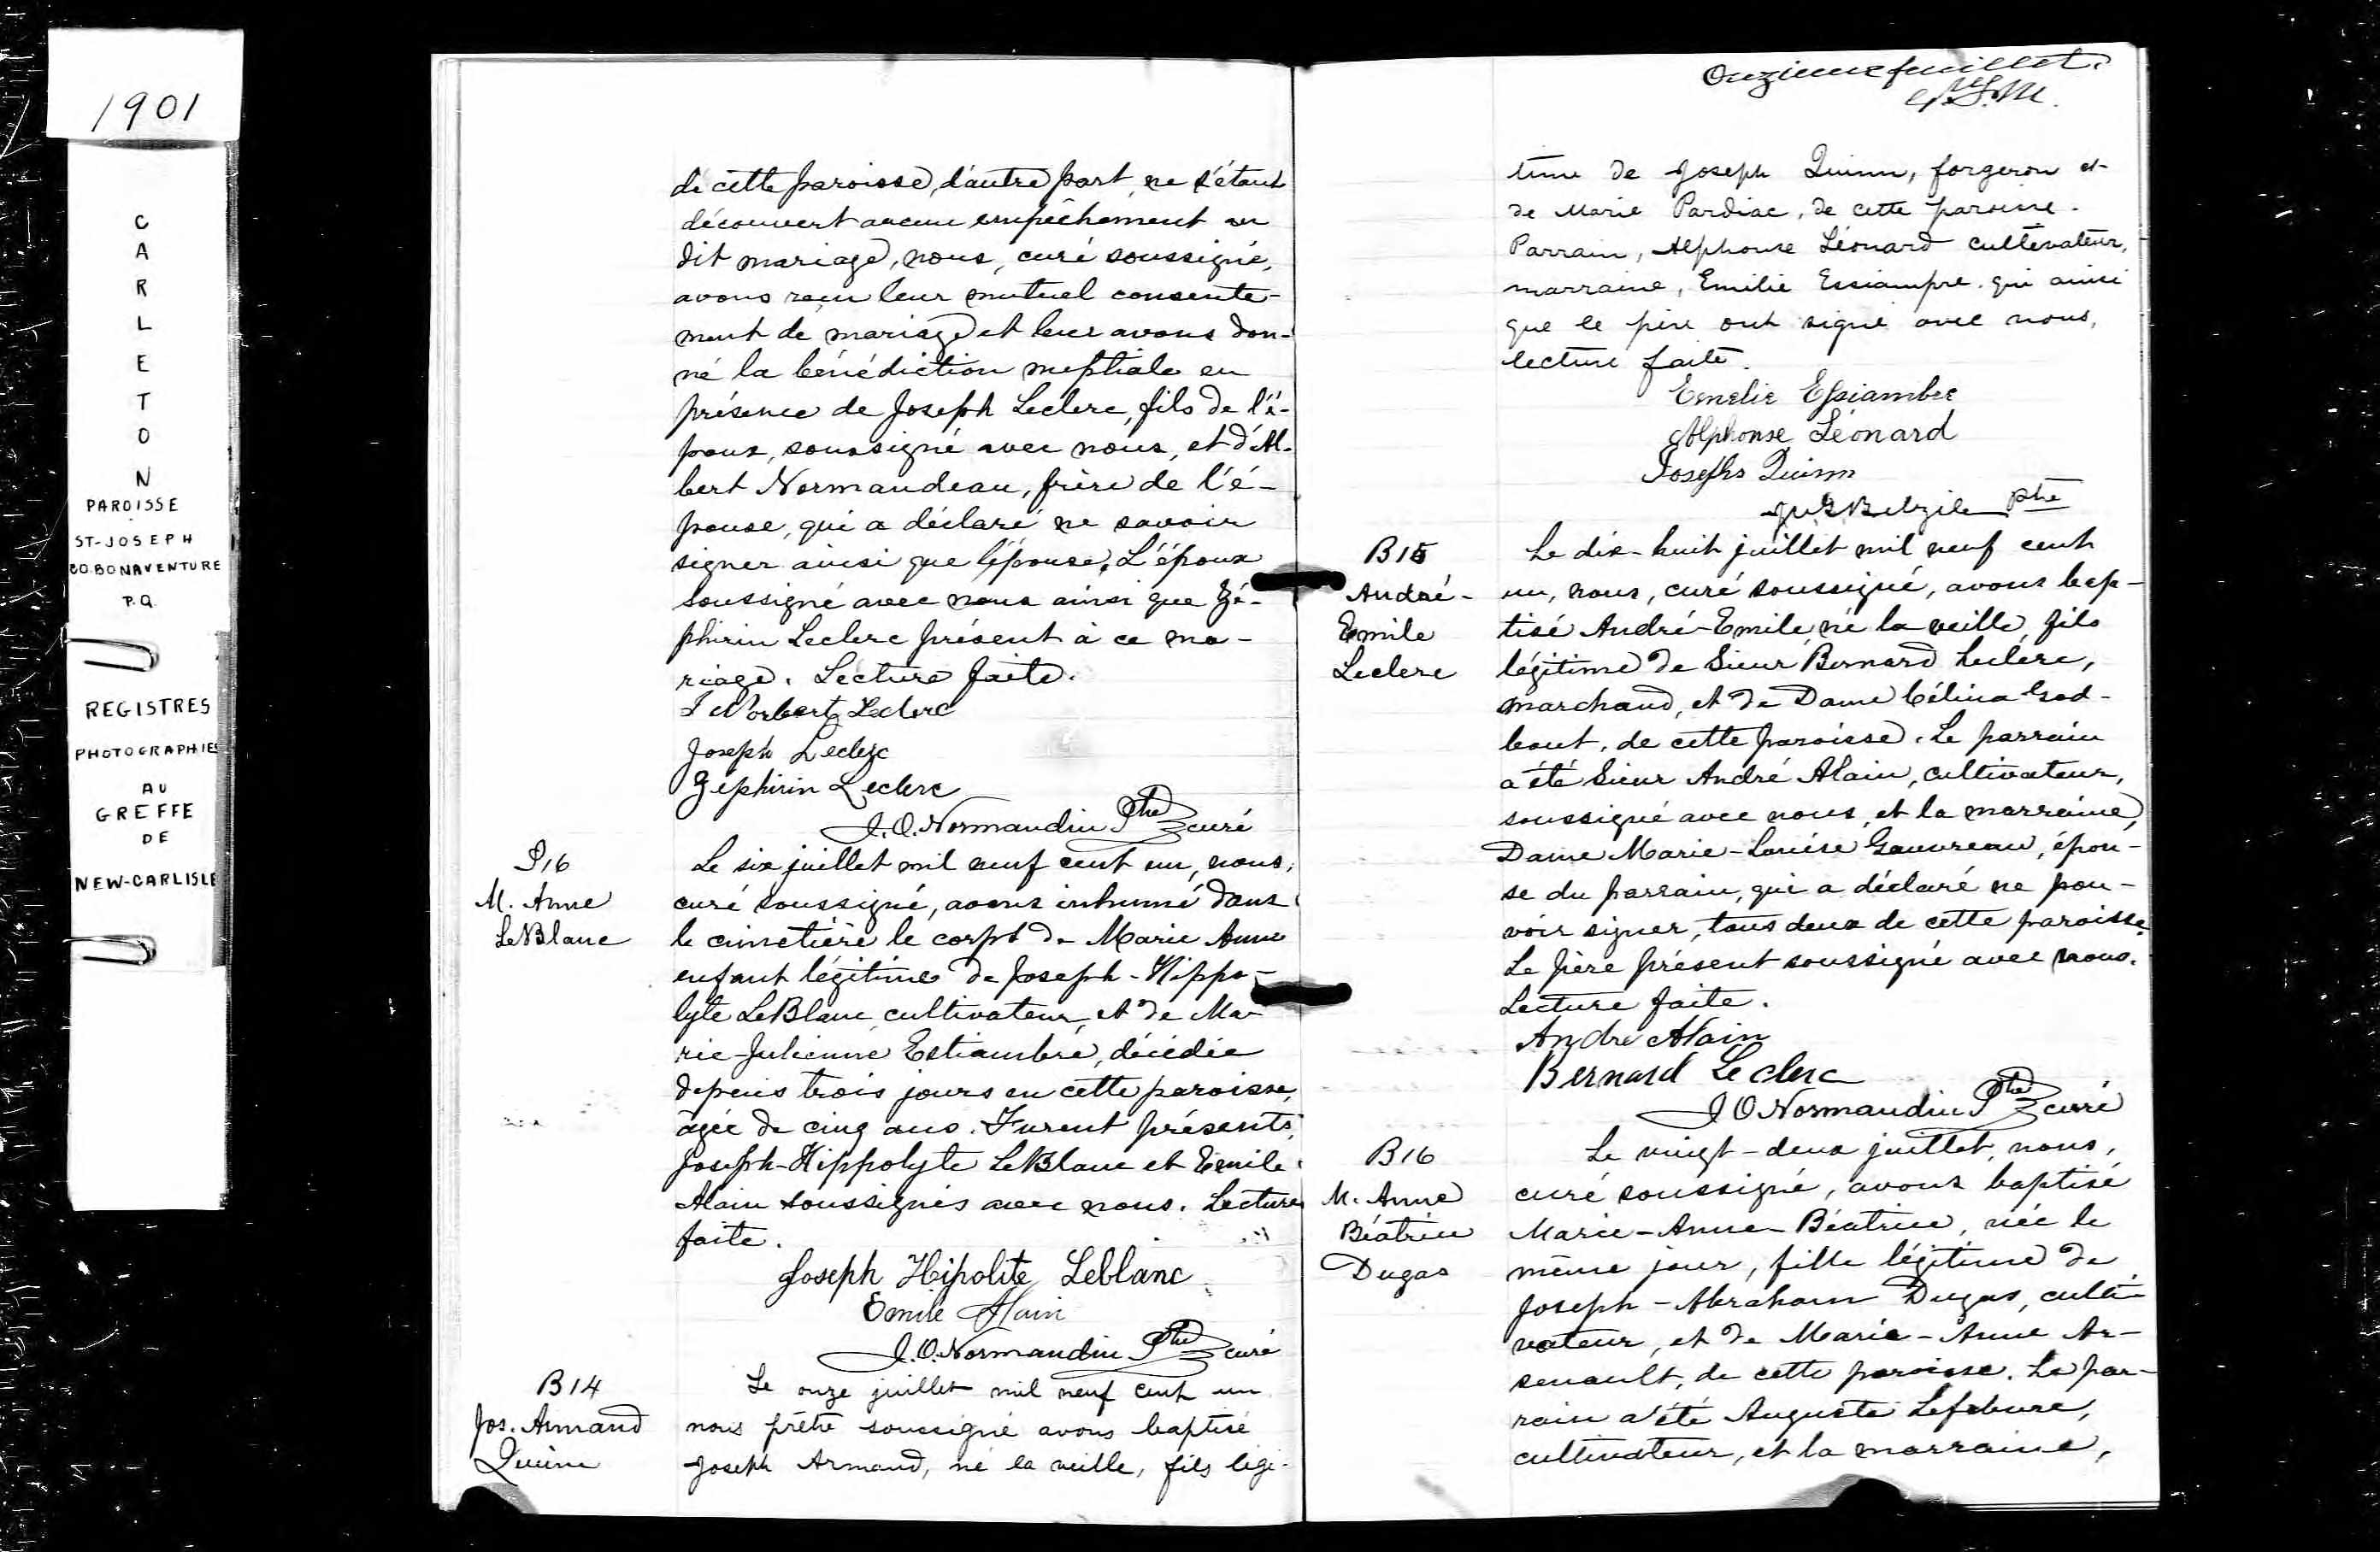 1901
C
A
R
L
E
T
O
N
PAROISSE
ST-JOSEPH
CO. BONAVENTURE
P.Q.
REGISTRES
PHOTOGRAPHIES
AU
GREFFE
DE
NEW-CARLISLE
de cette paroisse, d'autre part, ne s'étant
découvert aucun empêchement au
dit mariage, nous, curé soussigné,
avons reçu leur mutuel consente-
ment de mariage et leur avons don-
né la bénédiction nuptiale en
présence de Joseph Leclerc, fils de l'é-
poux, soussigné avec nous, et d'Al-
bert Normandeau, frère de l'é-
pouse, qui a déclaré ne savoir
signer ainsi que l'épouse. L'époux
soussigné avec nous ainsi que Zé-
phirin Leclerc présent à ce ma-
riage. Lecture faite.
J Norbert Leclerc
Joseph Leclerc
Zephirin Leclerc
J.O. Normandin Ptre curé
S16
M. Anne
LeBlanc
Le six juillet mil neuf cent un, nous,
curé soussigné, avons inhumé dans
le cimetière le corps de Marie Anne
enfant légitime de Joseph-Hippo-
lyte LeBlanc, cultivateur, et de Ma-
rie-Julienne Estiambre, décédée
depuis trois jours en cette paroisse,
âgée de cinq ans. Furent présents,
Joseph-Hippolyte LeBlanc et Emile
Alain soussignés avec nous. Lecture
faite.
Joseph Hipolite Leblanc
Emile Alain
J.O. Normandin Ptre curé
B14
Jos. Armand
Quinn
Le onze juillet mil neuf cent un
nous prêtre soussigné avons baptisé
Joseph Armand, né la veille, fils légi-
Onzieme feuillet.
time de Joseph Quinn, forgeron et
de Marie Pardiac, de cette paroisse.
Parrain, Alphonse Léonard cultivateur,
marraine, Emilie Essiampre. qui ainsi
que le père ont signé avec nous,
lecture faite.
Emelie Essiambre
Alphonse Léonard
Joseph Quinn
Belzile ptre
B15
André-
Emile
Leclerc
Le dix-huit juillet mil neuf cent
un, nous, curé soussigné, avons bap-
tisé André-Emile, né la veille, fils
légitime de Sieur Bernard Leclerc,
marchand, et de Dame Célina God-
bout, de cette paroisse. Le parrain
a été Sieur André Alain, cultivateur,
soussigné avec nous, et la marraine,
Dame Marie-Louise Gauvreau, épou-
se du parrain, qui a déclaré ne pou-
voir signer, tous deux de cette paroisse.
Le père présent soussigné avec nous.
Lecture faite.
Andre Alain
Bernard Leclerc
J O Normandin Ptre curé
B16
M. Anne
Béatrice
Dugas
Le vingt-deux juillet, nous,
curé soussigné, avons baptisé
Marie-Anne-Béatrice, née le
même jour, fille légitime de
Joseph-Abraham Dugas, culti-
vateur, et de Marie-Anne Ar-
senault, de cette paroisse. Le par-
rain a été Auguste Lefebvre,
cultivateur, et la marraine,